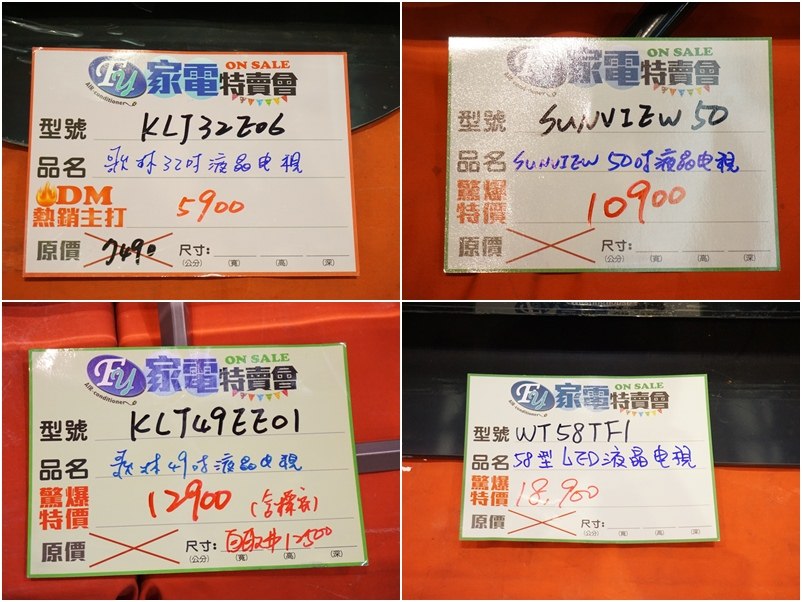 ON SALE
FU 家電特賣會
AIR-conditioner
型號 KLT32E06
品名 歌林32吋液晶电視
DM
熱銷主打 5900
原價 7490 尺寸:
(公分) (寬) (高) (深)
ON SALE
FU 家電特賣會
AIR-conditioner
型號 SUNVIEW 50
品名 SUNVIEW 50吋液晶电視
驚爆
特價 10900
原價 尺寸:
(公分) (寬) (高) (深)
ON SALE
FU 家電特賣會
AIR-conditioner
型號 KLT49EE01
品名 歌林49吋液晶电視
驚爆
特價 12900 (含標裝)
原價 尺寸: 自取井12500
(公分) (寬) (高) (深)
ON SALE
FU 家電特賣會
AIR-conditioner
型號 WT58TF1
品名 58型LED液晶电視
驚爆
特價 18,900
原價 尺寸:
(公分) (寬) (高) (深)